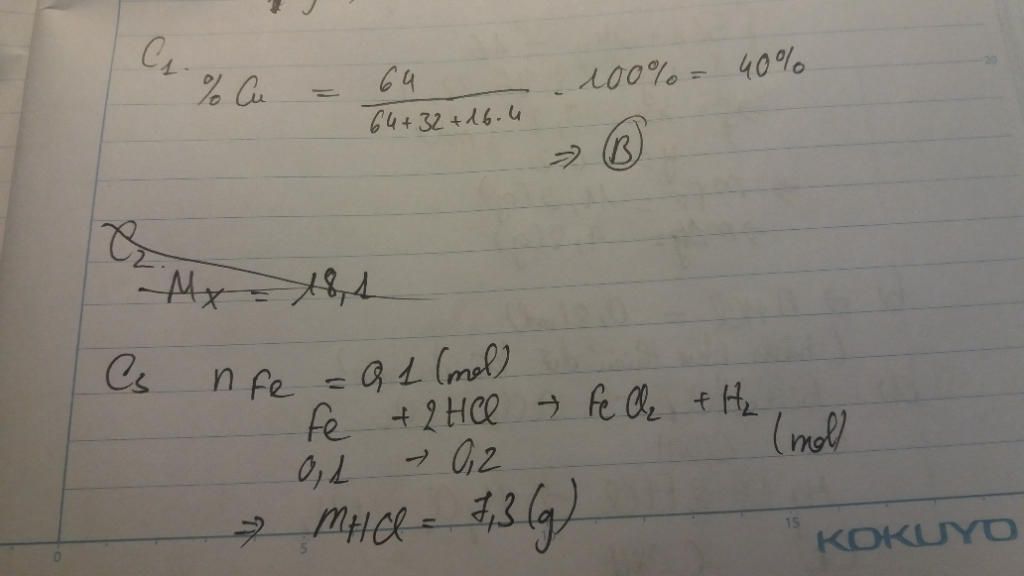 C1.
%Cu = 64 / 64+32+16.4 . 100% = 40%
⇒ B
C2.
Mx = 18,1
C3 nFe = 0,1 (mol)
Fe + 2HCl → FeCl2 + H2
0,1 → 0,2 (mol)
⇒ mHCl = 7,3 (g)
0 5 15 20
KOKUYO